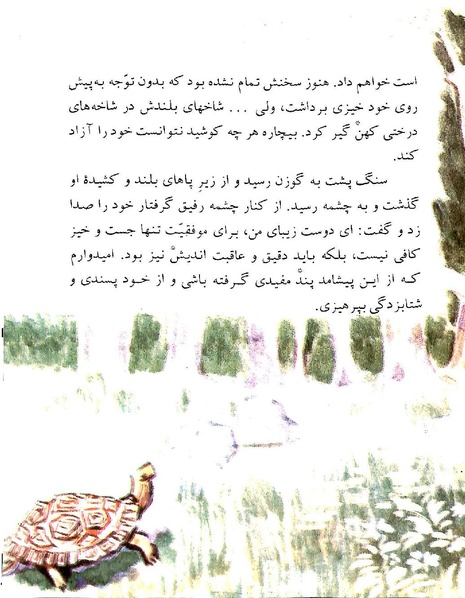 است خواهم داد. هنوز سخنش تمام نشده بود که بدون توّجه به‌پیش
روی خود خیزی برداشت، ولی ... شاخهای بلندش در شاخه‌های
درختی کهنْ گیر کرد. بیچاره هر چه کوشید نتوانست خود را آزاد
کند.
سنگ پشت به گوزن رسید و از زیرِ پاهای بلند و کشیدهٔ او
گذشت و به چشمه رسید. از کنار چشمه رفیق گرفتار خود را صدا
زد و گفت: ای دوست زیبای من، برای موفقیّت تنها جست و خیز
کافی نیست، بلکه باید دقیق و عاقبت اندیشْ نیز بود. امیدوارم
کـه از ایـن پیشامد پندْ مفیدی گـرفته باشی و از خـود پسندی و
شتابزدگی بپرهیزی.